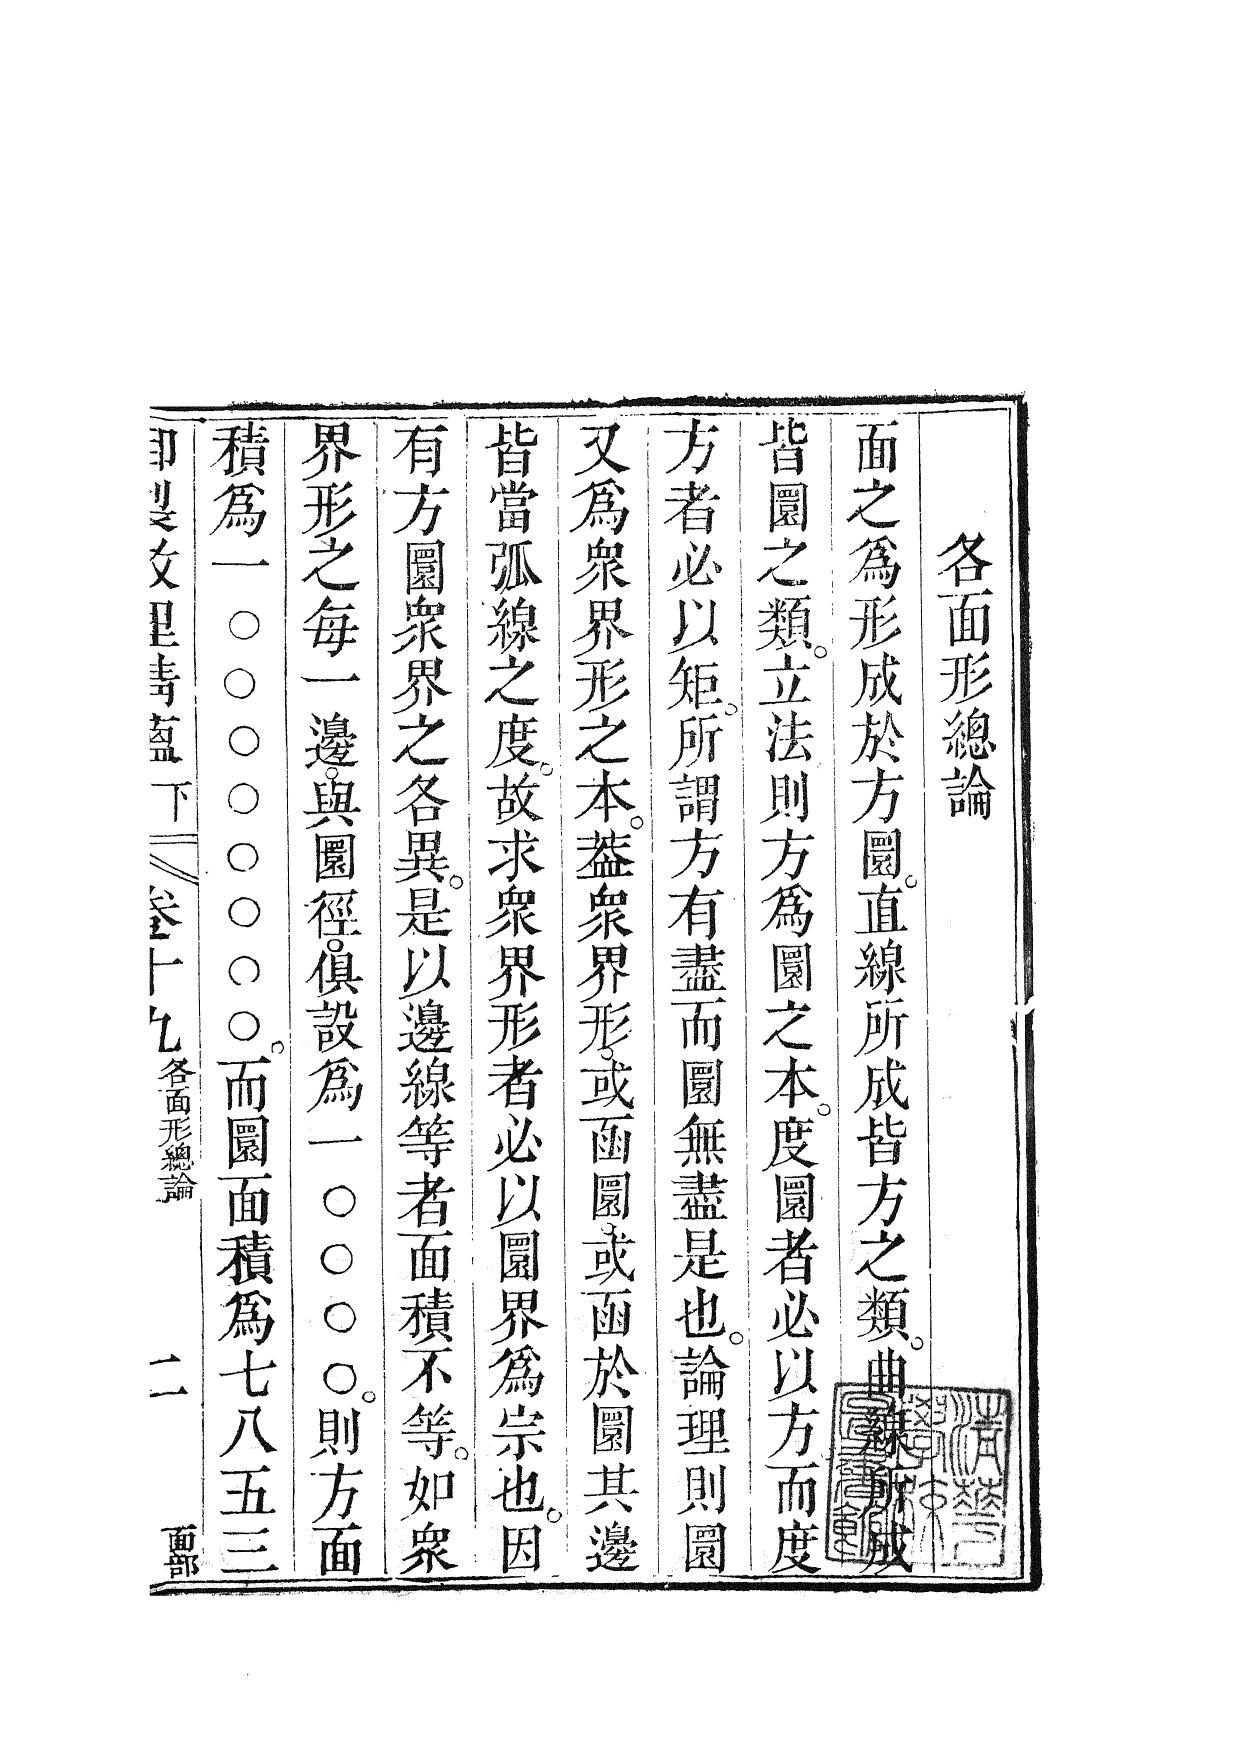 各面形總論
面之爲形成於方圜。直線所成皆方之類。曲線所成
皆圜之類。立法則方爲圜之本。度圜者必以方而度
方者必以矩。所謂方有盡而圜無盡是也。論理則圜
又爲衆界形之本。葢衆界形。或函圜。或函於圜其邊
皆當弧線之度。故求衆界形者必以圜界爲宗也。因
有方圜衆界之各異。是以邊線等者面積不等。如衆
界形之每一邊。與圜徑。俱設爲一〇〇〇〇。則方面
積爲一〇〇〇〇〇〇〇〇。而圜面積爲七八五三
御製數理精蘊 下 卷十九 各面形總論 二 面部
清華學校圖書館